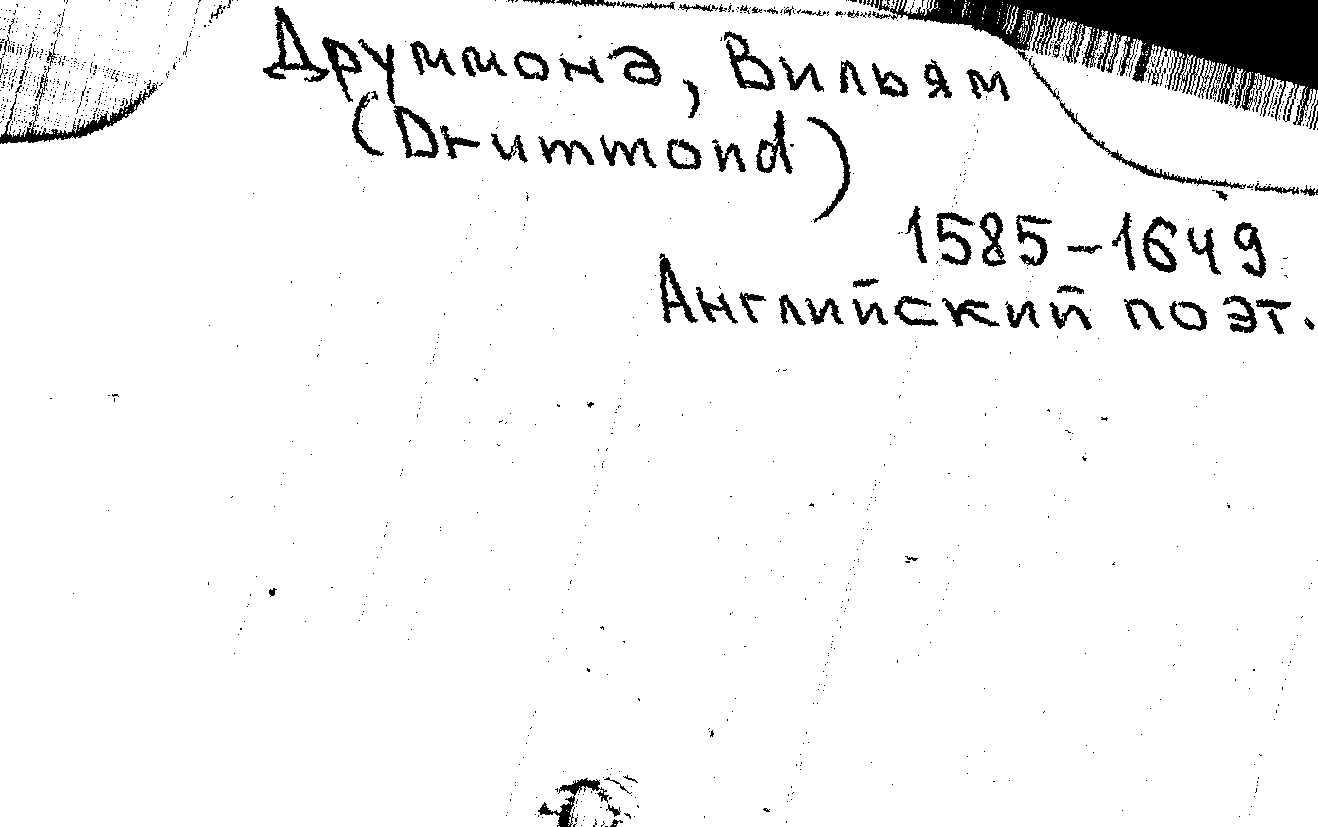 Друммонд, Вильям
(Drummond)
1585-1649
Английский поэт.